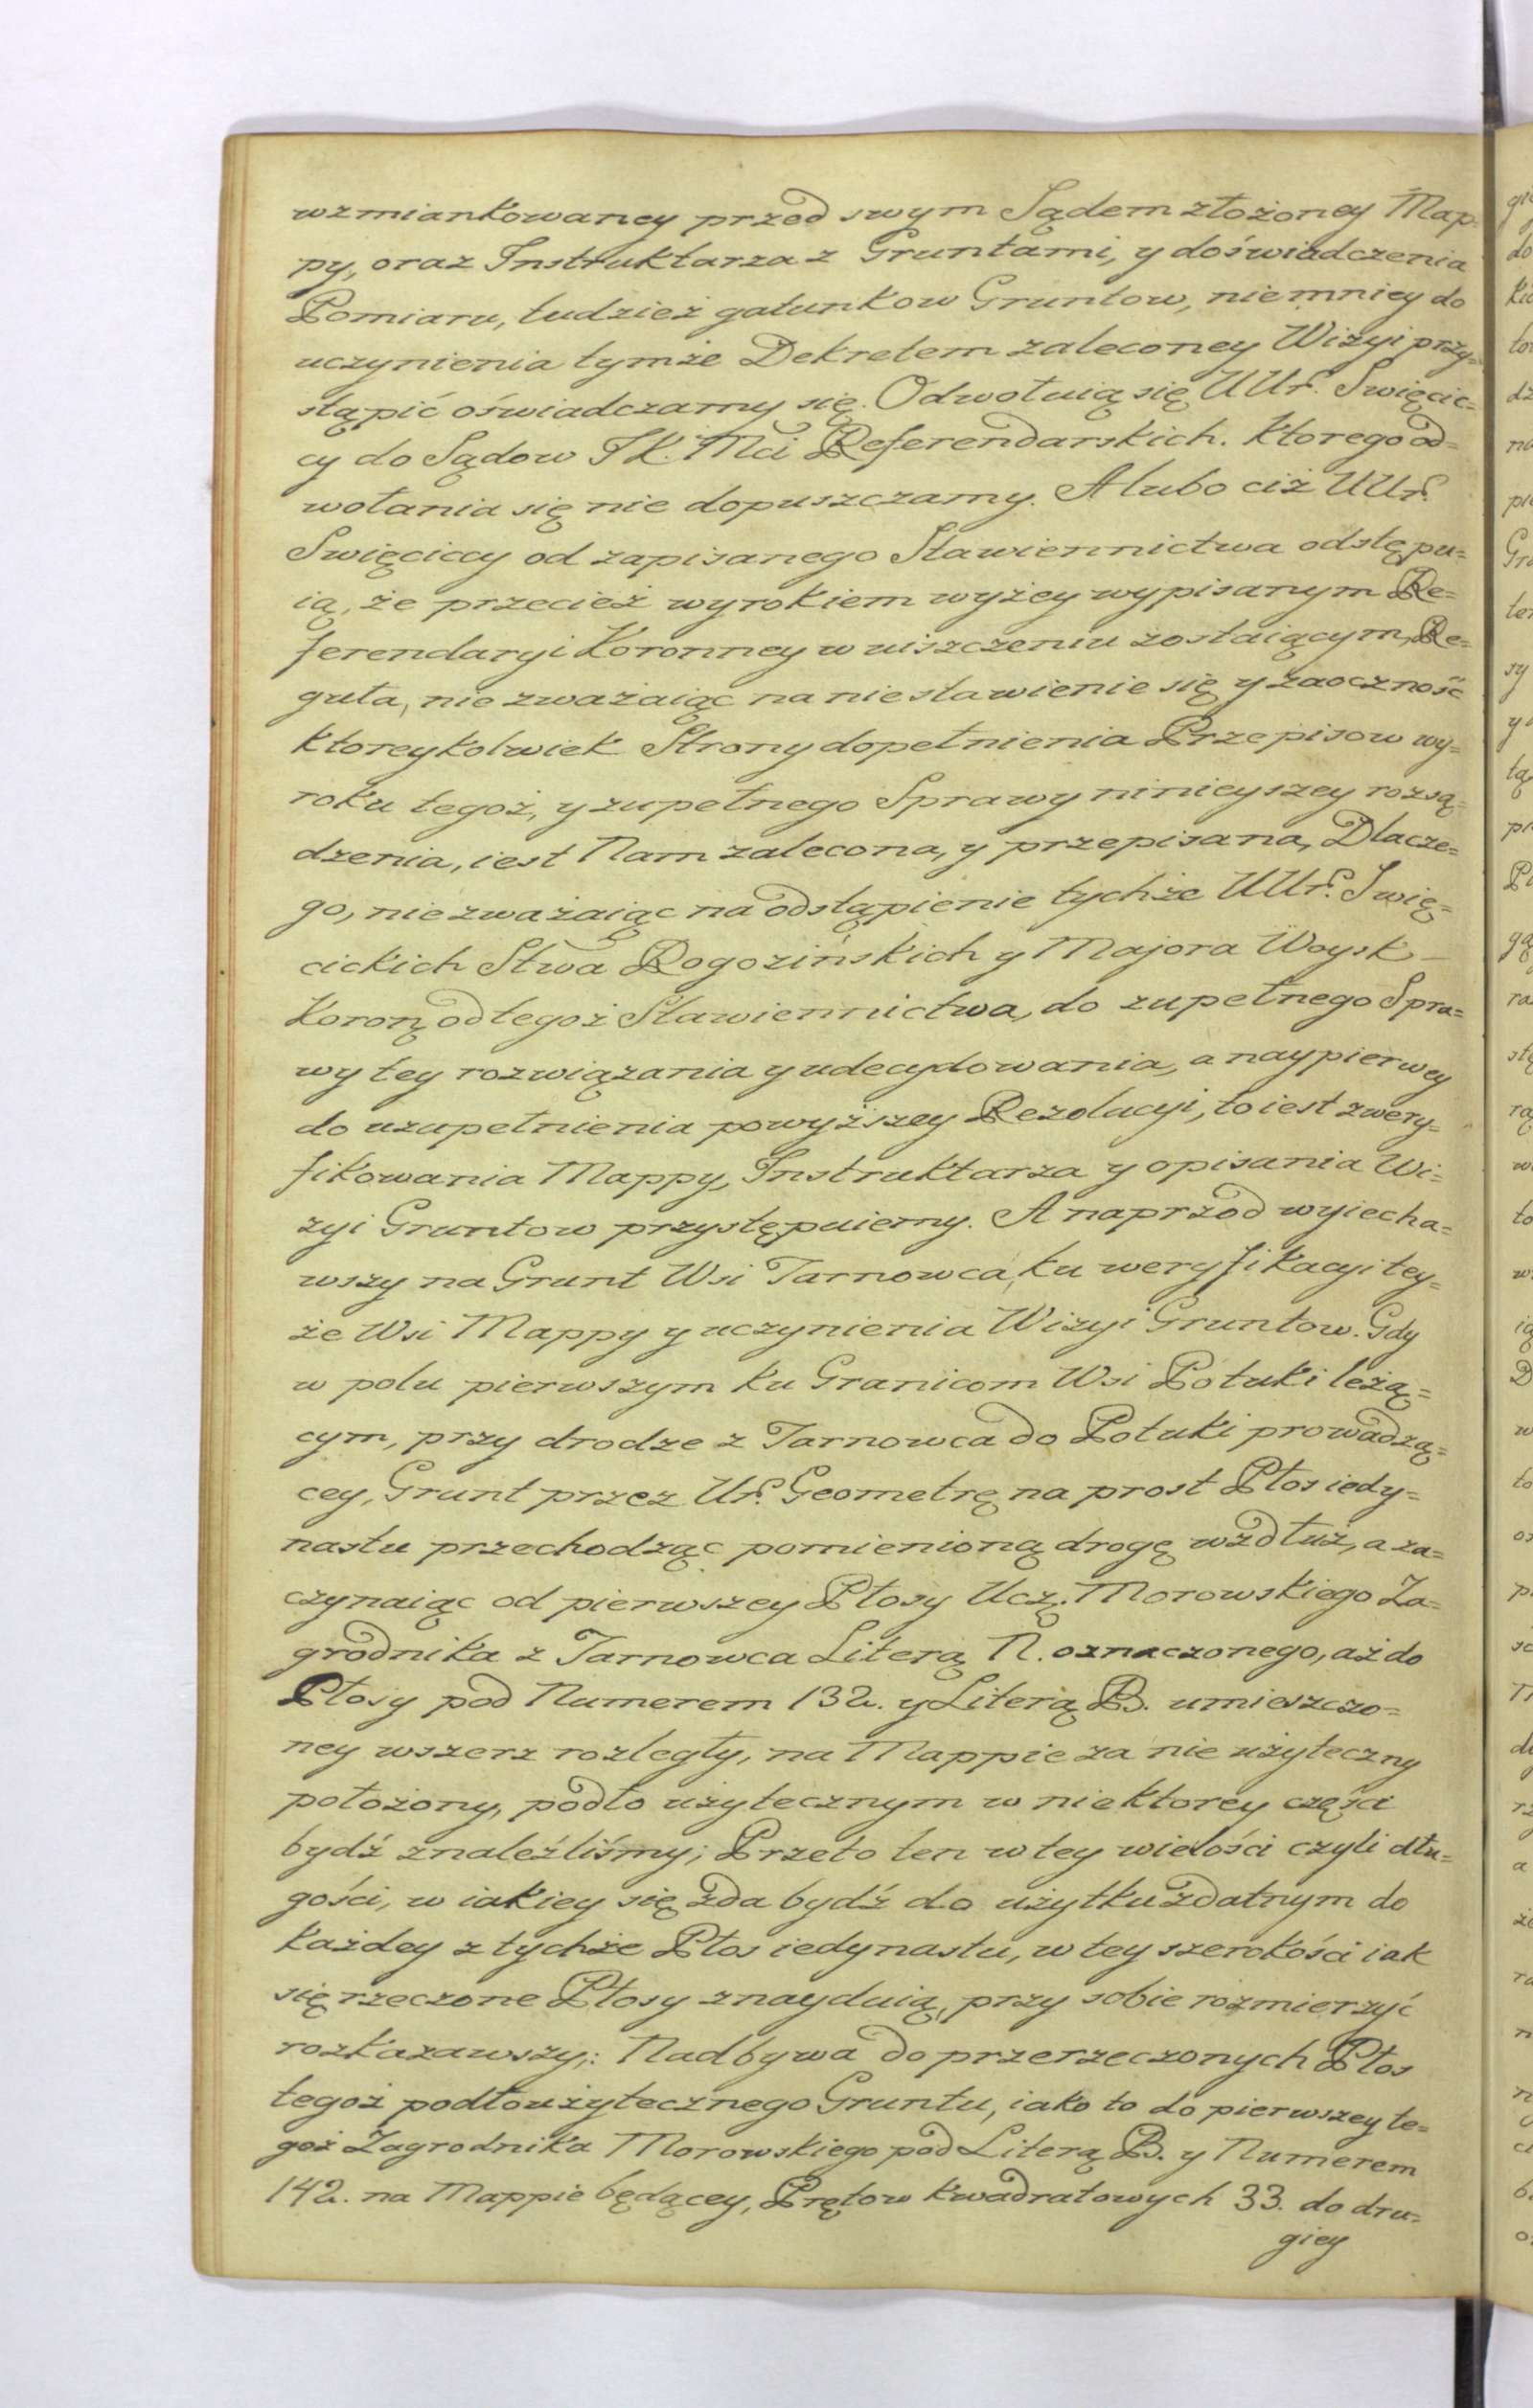 wzmiankowaney przed swym Sądem złożoney Map=
py, oraz Instruktarza z Gruntami, y doświadczenia
Pomiaru, tudzież gatunkow Gruntow, niemniey do
uczynienia tymże Dekretem zaleconey Wizyi przy=
stąpić oświadczamy się. Odwołuią się UUr. Swięcic=
cy do Sądow JK. Mci Referendarskich. Ktorego od=
wołania się nie dopuszczamy. A lubo ciż UUr.
Swięciccy od zapisanego Stawiennictwa odstępu=
ią, że przecież wyrokiem wyżey wypisanym Re=
ferendaryi Koronney w uiszczeniu zostaiącym, Re=
guła, nie zważaiąc na niestawienie się y zaoczność
ktoreykolwiek Strony dopełnienia Przepisow wy=
roku tegoż, y zupełnego Sprawy ninieyszey rozsą=
dzenia, iest Nam zalecona, y przepisana, Dlacze=
go, nie zważaiąc na odstąpienie tychże UUr. Swię=
cickich Stwa Rogozińskich y Majora Woysk
Koron̨ od tegoż Stawiennictwa, do zupełnego Spra=
wy tey rozwiązania y udecydowania, a naypierwey
do uzupełnienia powyższey Rezolucyi, to iest zwery=
fikowania Mappy, Instruktarza y opisania Wi=
zyi Gruntow przystępuiemy. A naprzod wyiecha=
wszy na Grunt Wsi Tarnowca, ku weryfikacyi tey=
że Wsi Mappy y uczynienia Wizyi Gruntow. Gdy
w polu pierwszym ku Granicom Wsi Połuki leżą=
cym, przy drodze z Tarnowca do Połuki prowadzą=
cey, Grunt przez Ur. Geometrę na prost Płos iedy=
nastu przechodząc pomienioną drogę wzdłuż, a za=
czynaiąc od pierwszey Płosy Ucz. Morowskiego Za=
grodnika z Tarnowca Literą N. oznaczonego, aż do
Płosy pod Numerem 132. y Literą B. umieszczo=
ney wszerz rozległy, na Mappie za nie użyteczny
położony, podło użytecznym w niektorey części
bydź znaleźliśmy; Przeto ten w tey wielości czyli dłu=
gości, w iakiey się zda bydź do użytku zdatnym do
każdey z tychże Płos iedynastu, w tey szerokości iak
się rzeczone Płosy znayduią, przy sobie rozmierzyć
rozkazawszy;: Nadbywa do przerzeczonych Płos
tegoż podłoużytecznego Gruntu, iako to do pierwszey te=
goż Zagrodnika Morowskiego pod Literą B. y Numerem
142. na Mappie będącey, Prętow kwadratowych 33. do dru=
giey